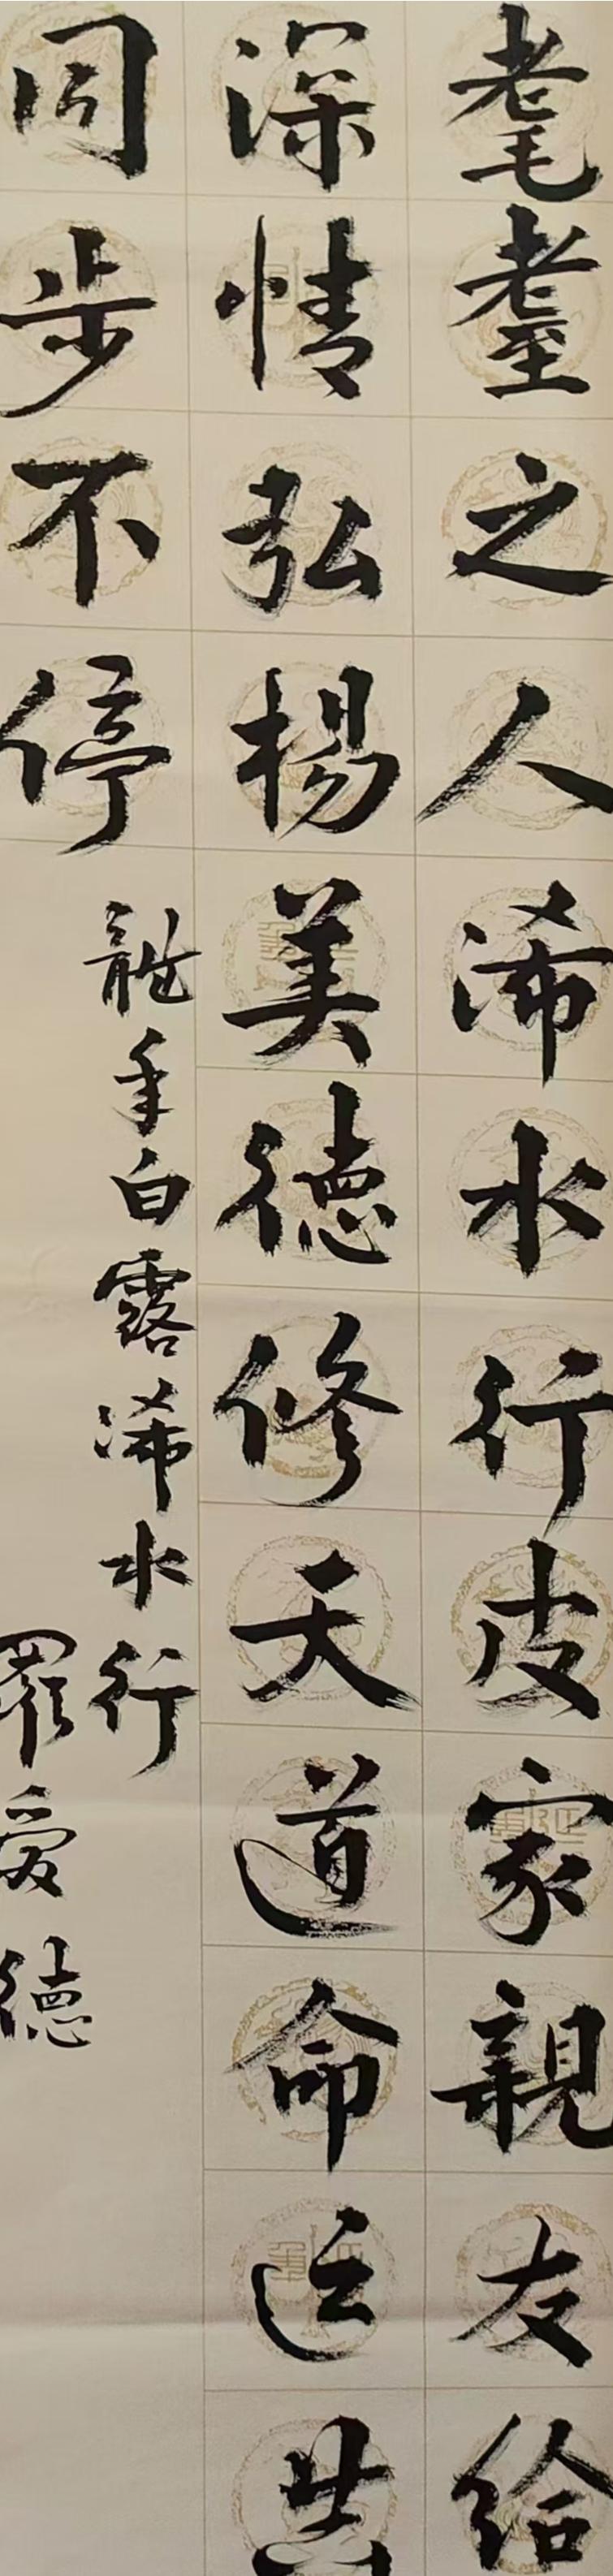 耄耋之人浠水行皮家親友给
深情弘楊美德修天道命运共
同步不停
龍年白露浠水行
羅愛德